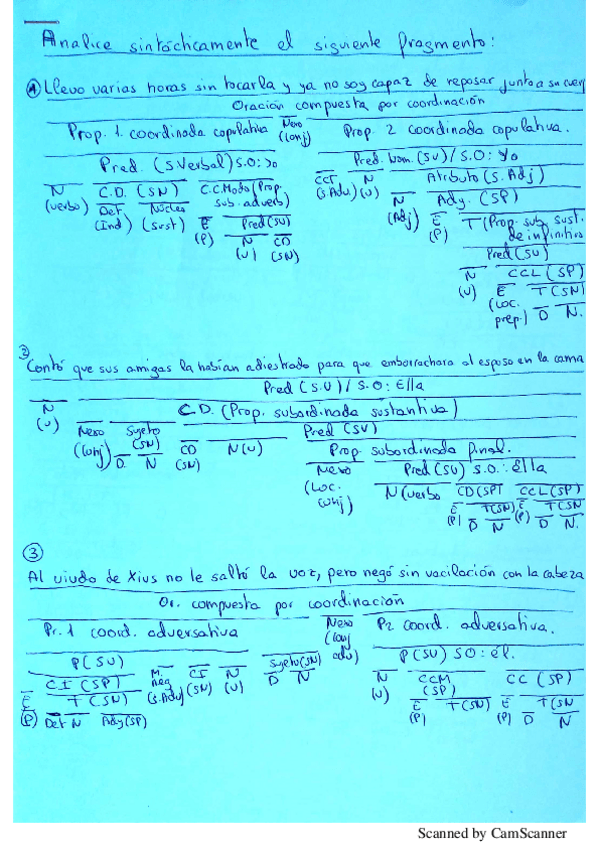 Analice sintácticamente el siguiente fragmento:
① Llevo varias horas sin tocarla y ya no soy capaz de reposar junto a su cuerp
Oración compuesta por coordinación
Prop. 1. coordinada copulativa Nexo (conj) Prop. 2 coordinada copulativa.
Pred. (S.Verbal) S.O: yo Pred. Nom. (SV) / S.O: Yo
N (verbo) C.D. (SN) C.C.Modo (Prop. sub. adverb) CCT (S.Adv.) N (v) Atributo (S. Adj)
Det. (Ind) Núcleo (sust) E (P) Pred (SV) N (Adj) Ady. (SP)
N (v) CD (SN) E (P) T (Prop. sub. sust. de infinitivo
Pred (SV)
N (v) CCL (SP)
E (Loc. prep.) T (SN)
D N.
② Contó que sus amigas la habían adiestrado para que emborrachara al esposo en la cama
Pred (S.V) / S.O: Ella
N (v) C.D. (Prop. subordinada sustantiva)
Nexo (conj) Sujeto (SN) Pred (SV)
D. N CD (SN) N (v) Prop. subordinada final.
Nexo (Loc. conj) Pred (SV) S.O.: Ella
N (verbo CD (SP) CCL (SP)
E (P) T (SN) E (P) T (SN
D N D N.
③
Al viudo de Xius no le saltó la voz, pero negó sin vacilación con la cabeza
Or. compuesta por coordinación
Pr. 1 coord. adversativa Nexo (conj adv) P2 coord. adversativa.
P (SV) Sujeto (SN) P (SV) SO: él.
C I (SP) M. neg (S.Adv) CI (SN) N (v) D N N (v) CCM (SP) CC (SP)
E (P) T (SN) E (P) T (SN) E (P) T (SN
Det N Ady (SP) D N
Scanned by CamScanner